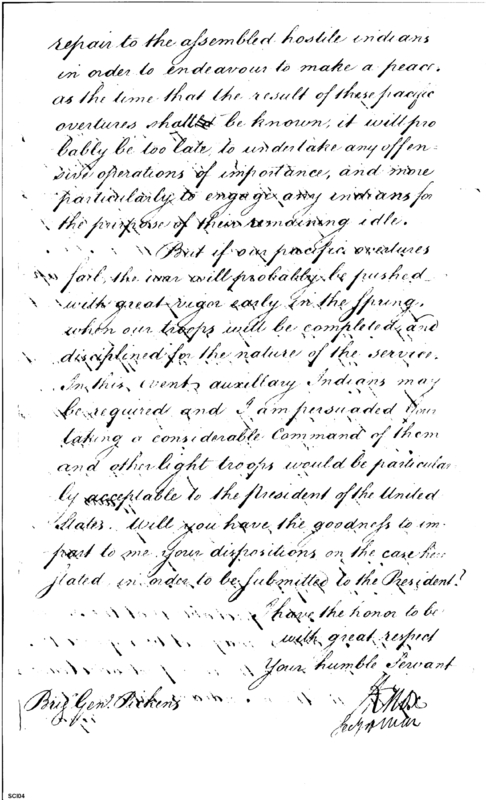 repair to the assembled hostile indians
in order to endeavour to make a peace.
as the time that the result of these pacific
overtures shall be known, it will pro
bably be too late, to undertake any offen-
sive operations of importance, and more
particularly to engage any indians for
the purpose of their remaining idle.
But if our pacific overtures
fail, the war will probably be pushed
with great vigor early in the Spring.
when our troops will be completed, and
disciplined for the nature of the service.
In this event auxillary Indians may
be required and I am persuaded your
taking a considerable Command of them
and other light troops would be particular
ly acceptable to the President of the United
States. Will you have the goodness to im-
part to me your dispositions on the case here
stated in order to be submitted to the President?
I have the honor to be
with great respect
Your humble Servant
HKnox
Secy of War
Brig Genl. Pickens
SCI04